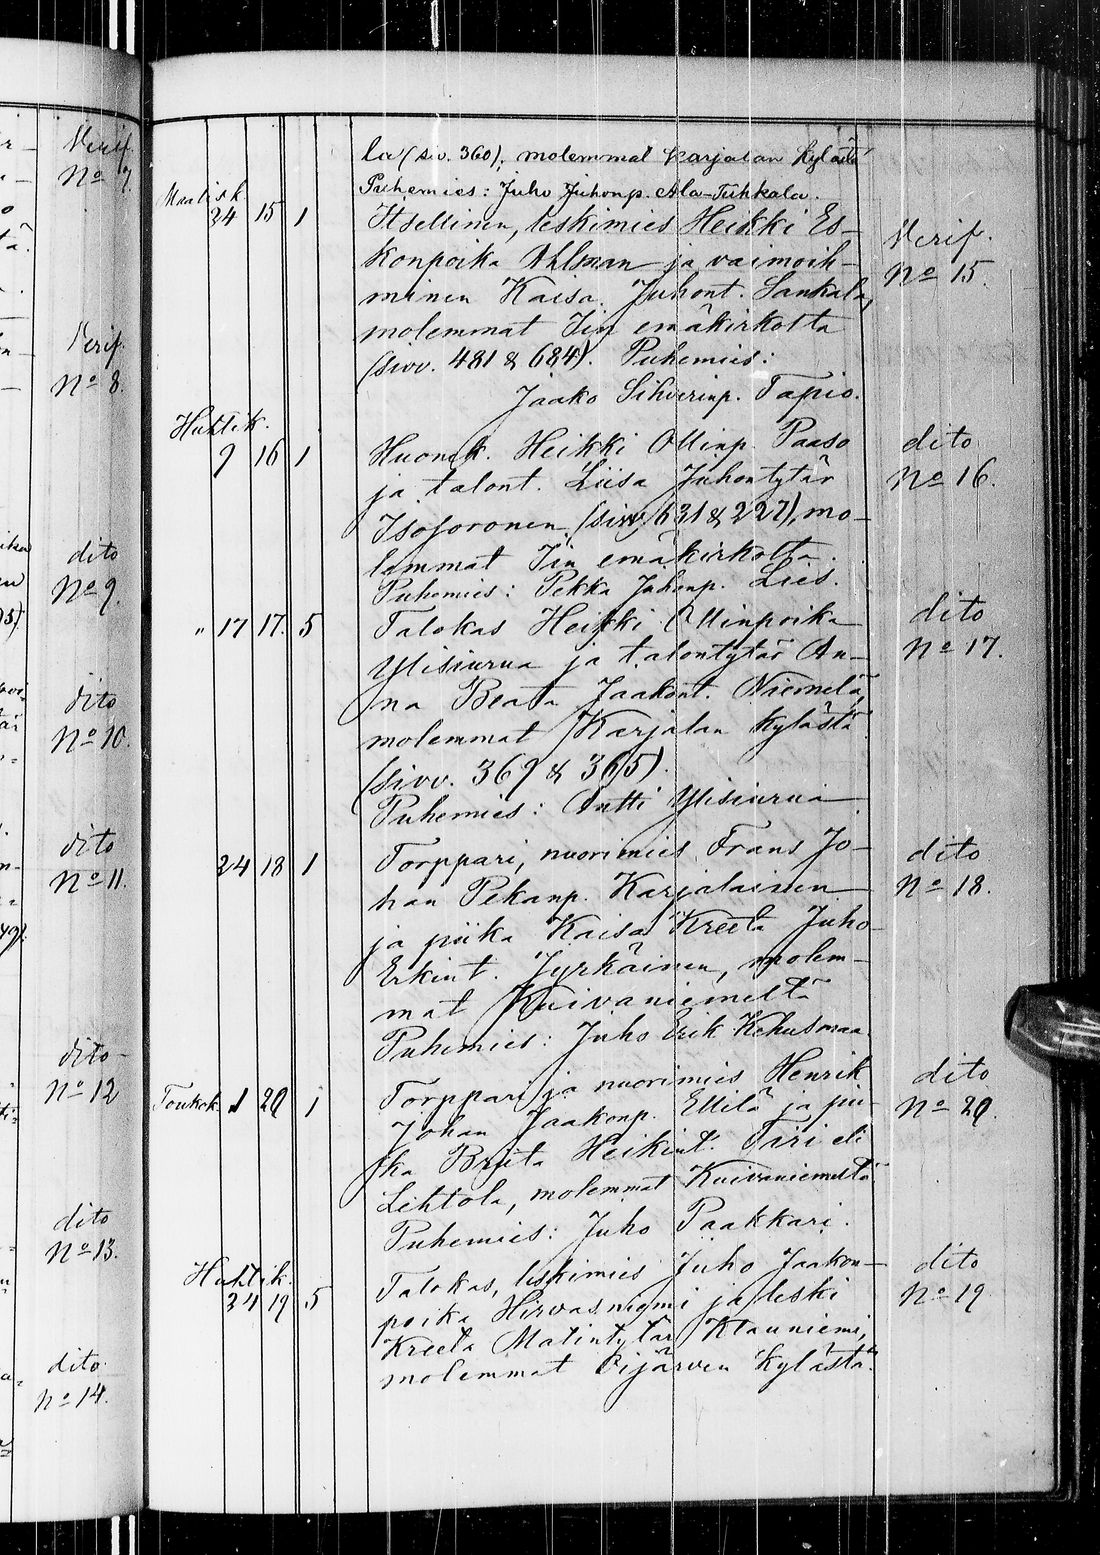 Verif.
No 7.
Verif.
No 8.
dito
No 9.
dito
No 10.
dito
No 11.
dito
No 12
dito
No 13.
dito
No 14.
la (siv. 360), molemmat Karjalan kylästä
Puhemies: Juho Juhonp. Ala-Tuhkala.
Maalisk.
24 15 1 Itsellinen, leskimies Heikki Es- Verif.
konpoika Ahlman ja vaimoih- No 15.
minen Kaisa Juhont. Sankala,
molemmat Iin emäkirkolta
(sivv. 481 & 684). Puhemies:
Jaako Sihverinp. Tapio.
Huhtik.
9 16 1 Huonek. Heikki Ollinp. Paaso dito
ja talont. Liisa Juhontytär No 16.
Isosoronen (sivv. 631 & 227), mo-
lemmat Iin emäkirkolta.
Puhemies: Pekka Juhonp. Lies.
" 17 17. 5 Talokas Heikki Ollinpoika dito
Ylisiurua ja talontytär An- No 17.
na Beata Jaakont. Niemelä,
molemmat Karjalan kylästä
(sivv. 369 & 365).
Puhemies: Antti Ylisiurua
24 18 1 Torppari, nuorimies Frans Jo- dito
han Pekanp. Karjalainen No 18.
ja piika Kaisa Kreeta Juho
Erkint. Jyrkäinen, molem-
mat Kuivaniemeltä
Puhemies: Juho Erik Kehusmaa.
Toukok. 1 20 1 Torppari ja nuorimies Henrik dito
Johan Jaakonp. Ellilä ja pii- No 20.
ka Brita Heikint. Tiri eli
Lehtola, molemmat Kuivaniemeltä
Puhemies: Juho Paakkari.
Huhtik.
24 19 5 Talokas, leskimies Juho Jaakon- dito
poika Hirvasniemi ja leski No 19
Kreeta Matintytär Klauniemi,
molemmat Oijärven kylästä.